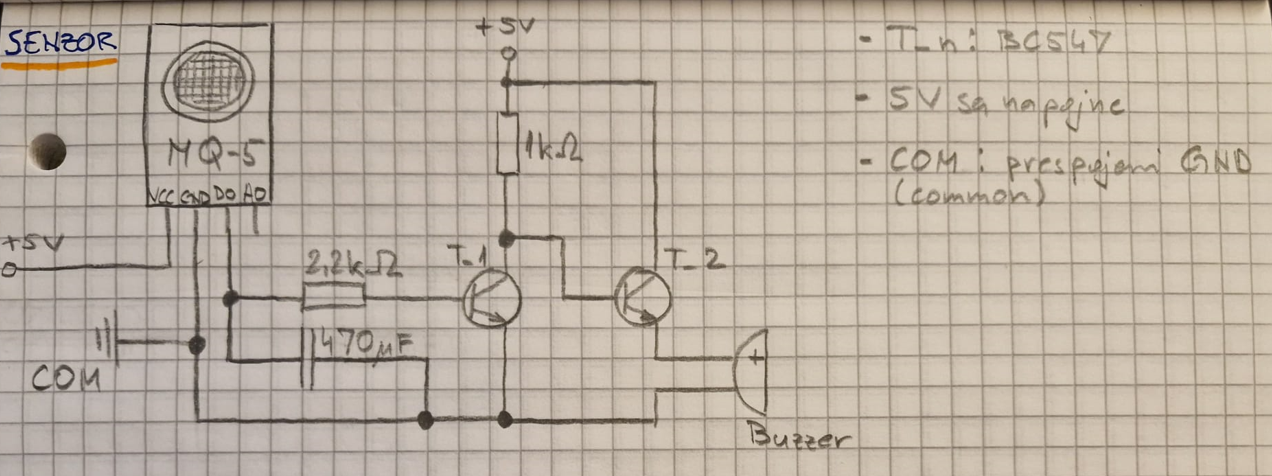 SENZOR
+5V
MQ-5
VCC GND DO AO
+5V
COM
2,2kΩ
470μF
1kΩ
T_1
T_2
+
Buzzer
- T_n: BC547
- 5V sa napojne
- COM: prespojeni GND
(common)